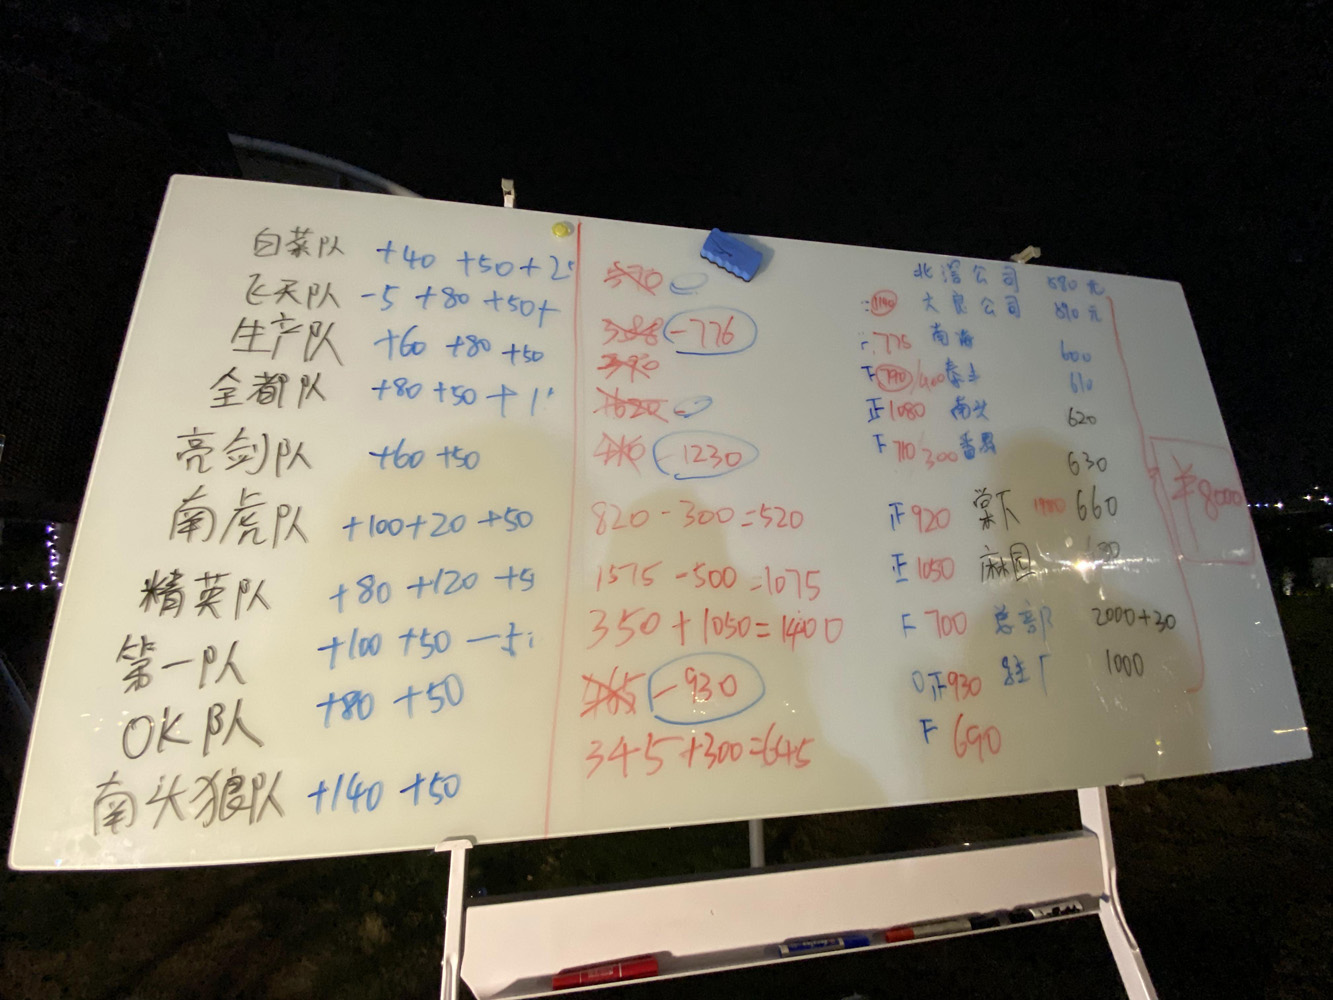 白菜队 +40 +50 +2
飞天队 -5 +80 +50+
生产队 +60 +80 +50
全都队 +80 +50 +1
亮剑队 +60 +50
南虎队 +100+20 +50
精英队 +80 +120 +5
第一队 +100 +50 -5
OK队 +80 +50
南头狼队 +140 +50
570
3588 -776
390
1620
-1230
820-300=520
1575-500=1075
350+1050=1400
465 -930
345+300=645
北滘公司 元
1140 大良公司 890元
775 南海 600
790/400 610
正1080 南头 620
710/300 番禺 630
正920 棠下 660
正1050 麻园
700 总部 2000+30
正930 1000
690
¥8000